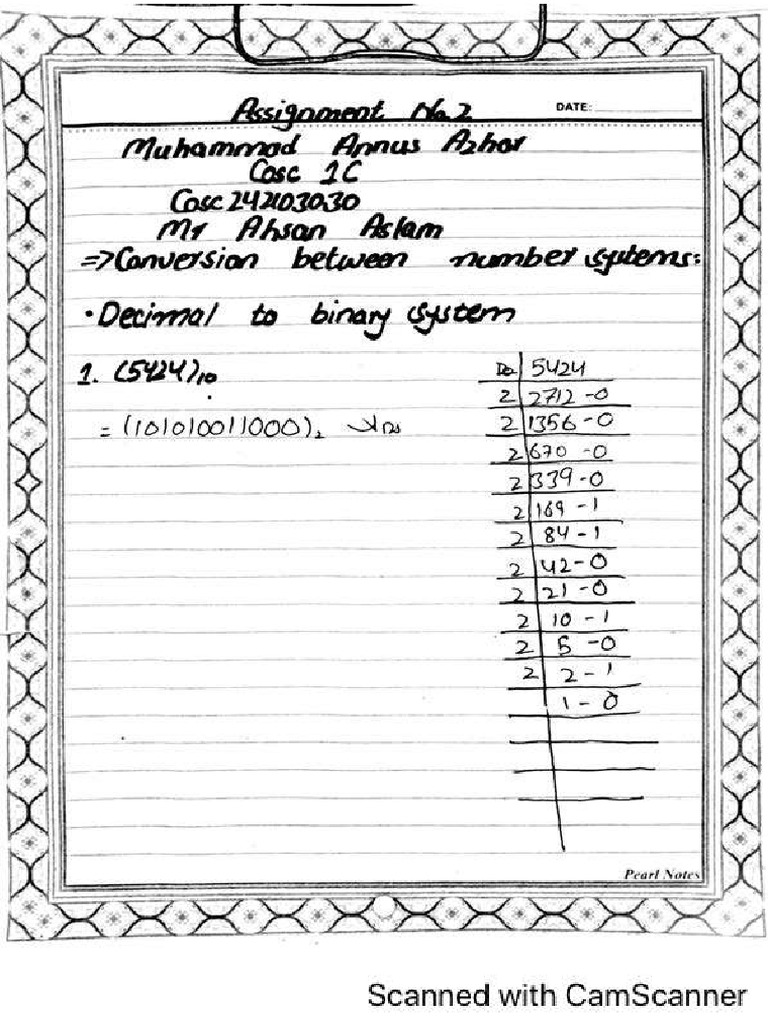 Assignment No 2
DATE:
Muhammad Annus Azhar
Cosc 1C
Cosc 242103030
Mr Ahsan Aslam
=> Conversion between number systems:
• Decimal to binary system
1. (5424)10
= (101010011000)2
5424
2 2712 - 0
2 1356 - 0
2 670 - 0
2 339 - 0
2 169 - 1
2 84 - 1
2 42 - 0
2 21 - 0
2 10 - 1
2 5 - 0
2 2 - 1
1 - 0
Pearl Notes
Scanned with CamScanner